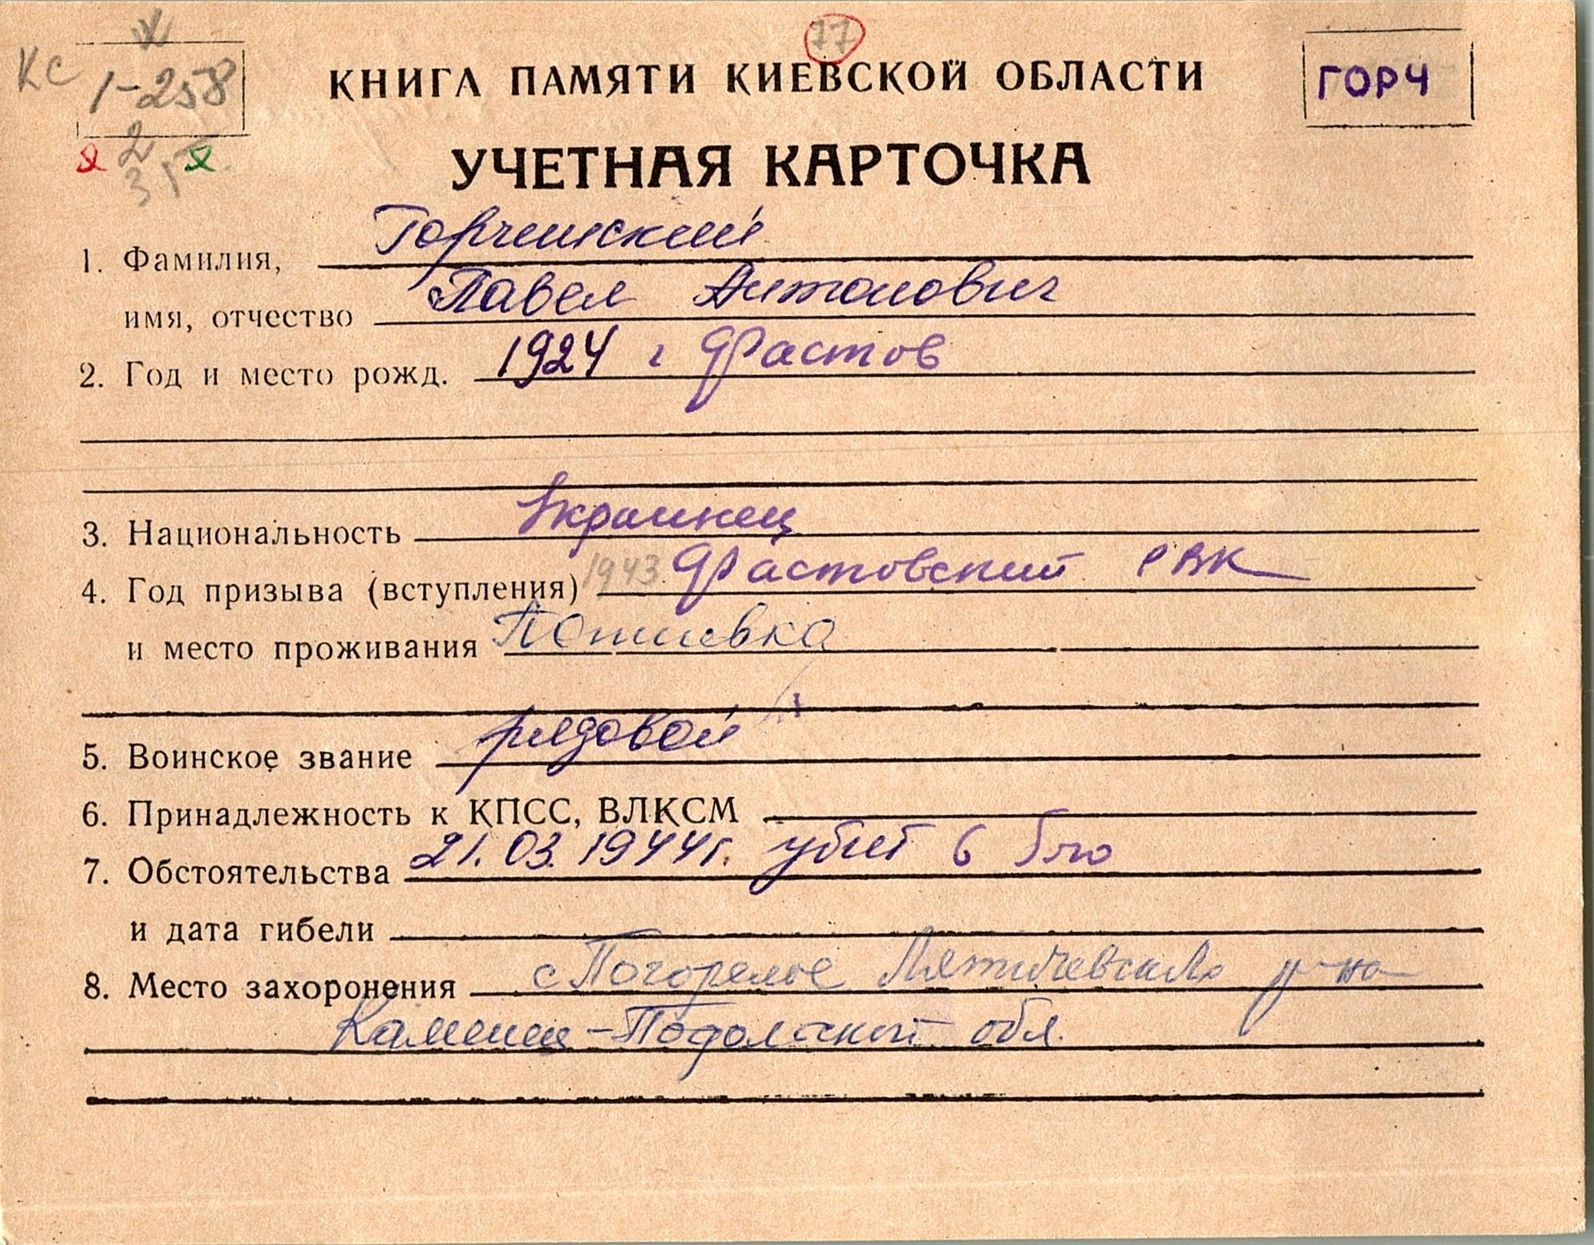 77
КС 1-258 КНИГА ПАМЯТИ КИЕВСКОЙ ОБЛАСТИ ГОРЧ
2
УЧЕТНАЯ КАРТОЧКА
1. Фамилия, Горчинский
имя, отчество Павел Антонович
2. Год и место рожд. 1924 г Фастов
3. Национальность Украинец
4. Год призыва (вступления) 1943 Фастовский РВК
и место проживания
5. Воинское звание рядовой
6. Принадлежность к КПСС, ВЛКСМ
7. Обстоятельства 21.03.1944г. убит в бою
и дата гибели
8. Место захоронения с Погорелое Летичевского р-на
Каменец-Подольской обл.